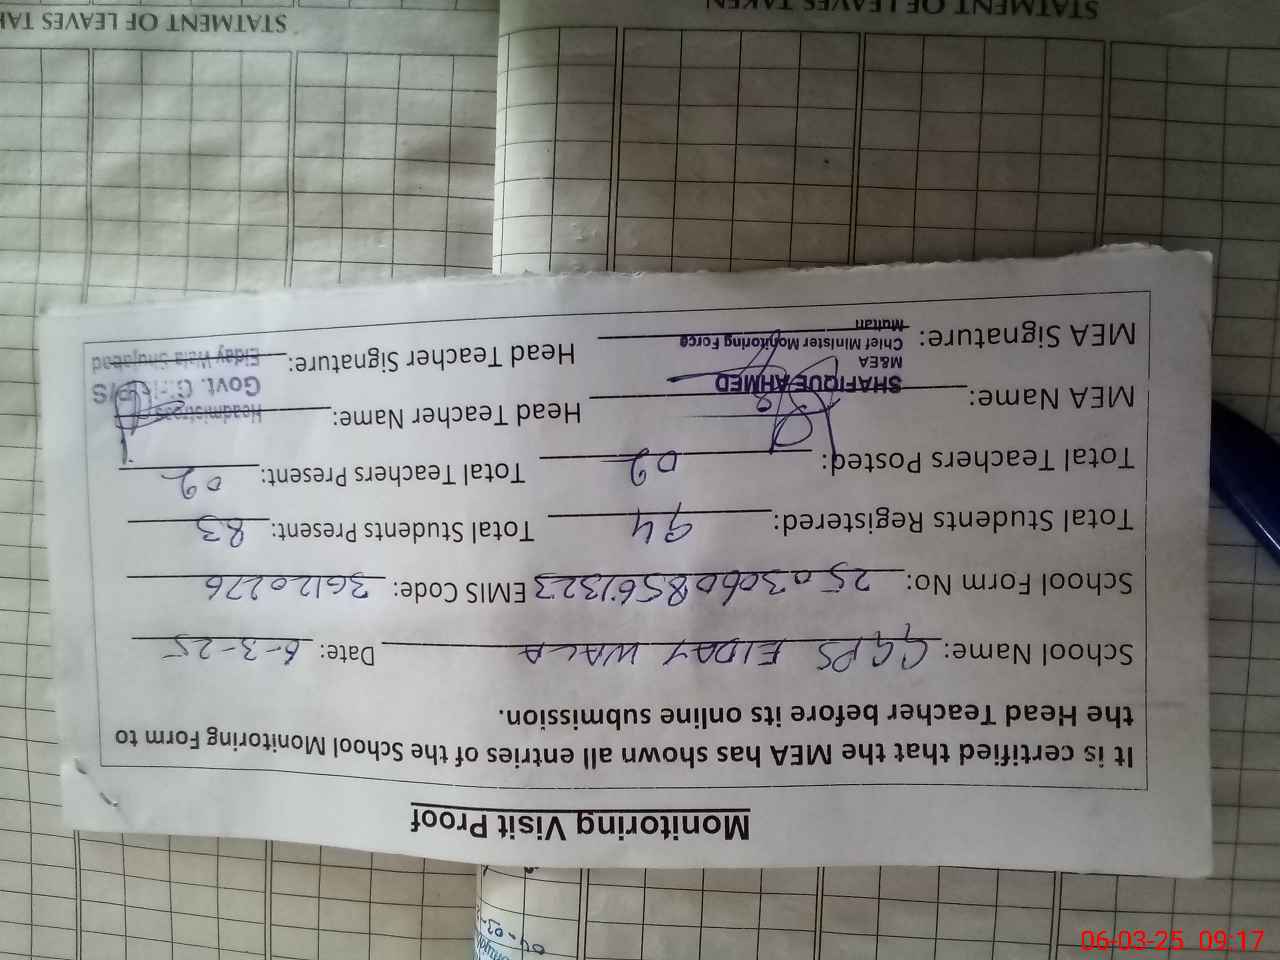 Monitoring Visit Proof
It is certified that the MEA has shown all entries of the School Monitoring Form to
the Head Teacher before its online submission.
School Name: GGPS EIDAY WALA Date: 6-3-25
School Form No: 25030608561323 EMIS Code: 36120276
Total Students Registered: 94 Total Students Present: 83
Total Teachers Posted: 02 Total Teachers Present: 02
MEA Name: SHAFIQUE AHMED Head Teacher Name: Headmistress
M&EA Govt. G
MEA Signature: Chief Minister Monitoring Force Head Teacher Signature: Eiday Wala Shujabad
Multan
STATMENT OF LEAVES TAKEN
STATMENT OF LEAVES TA
06-03-25 09:17